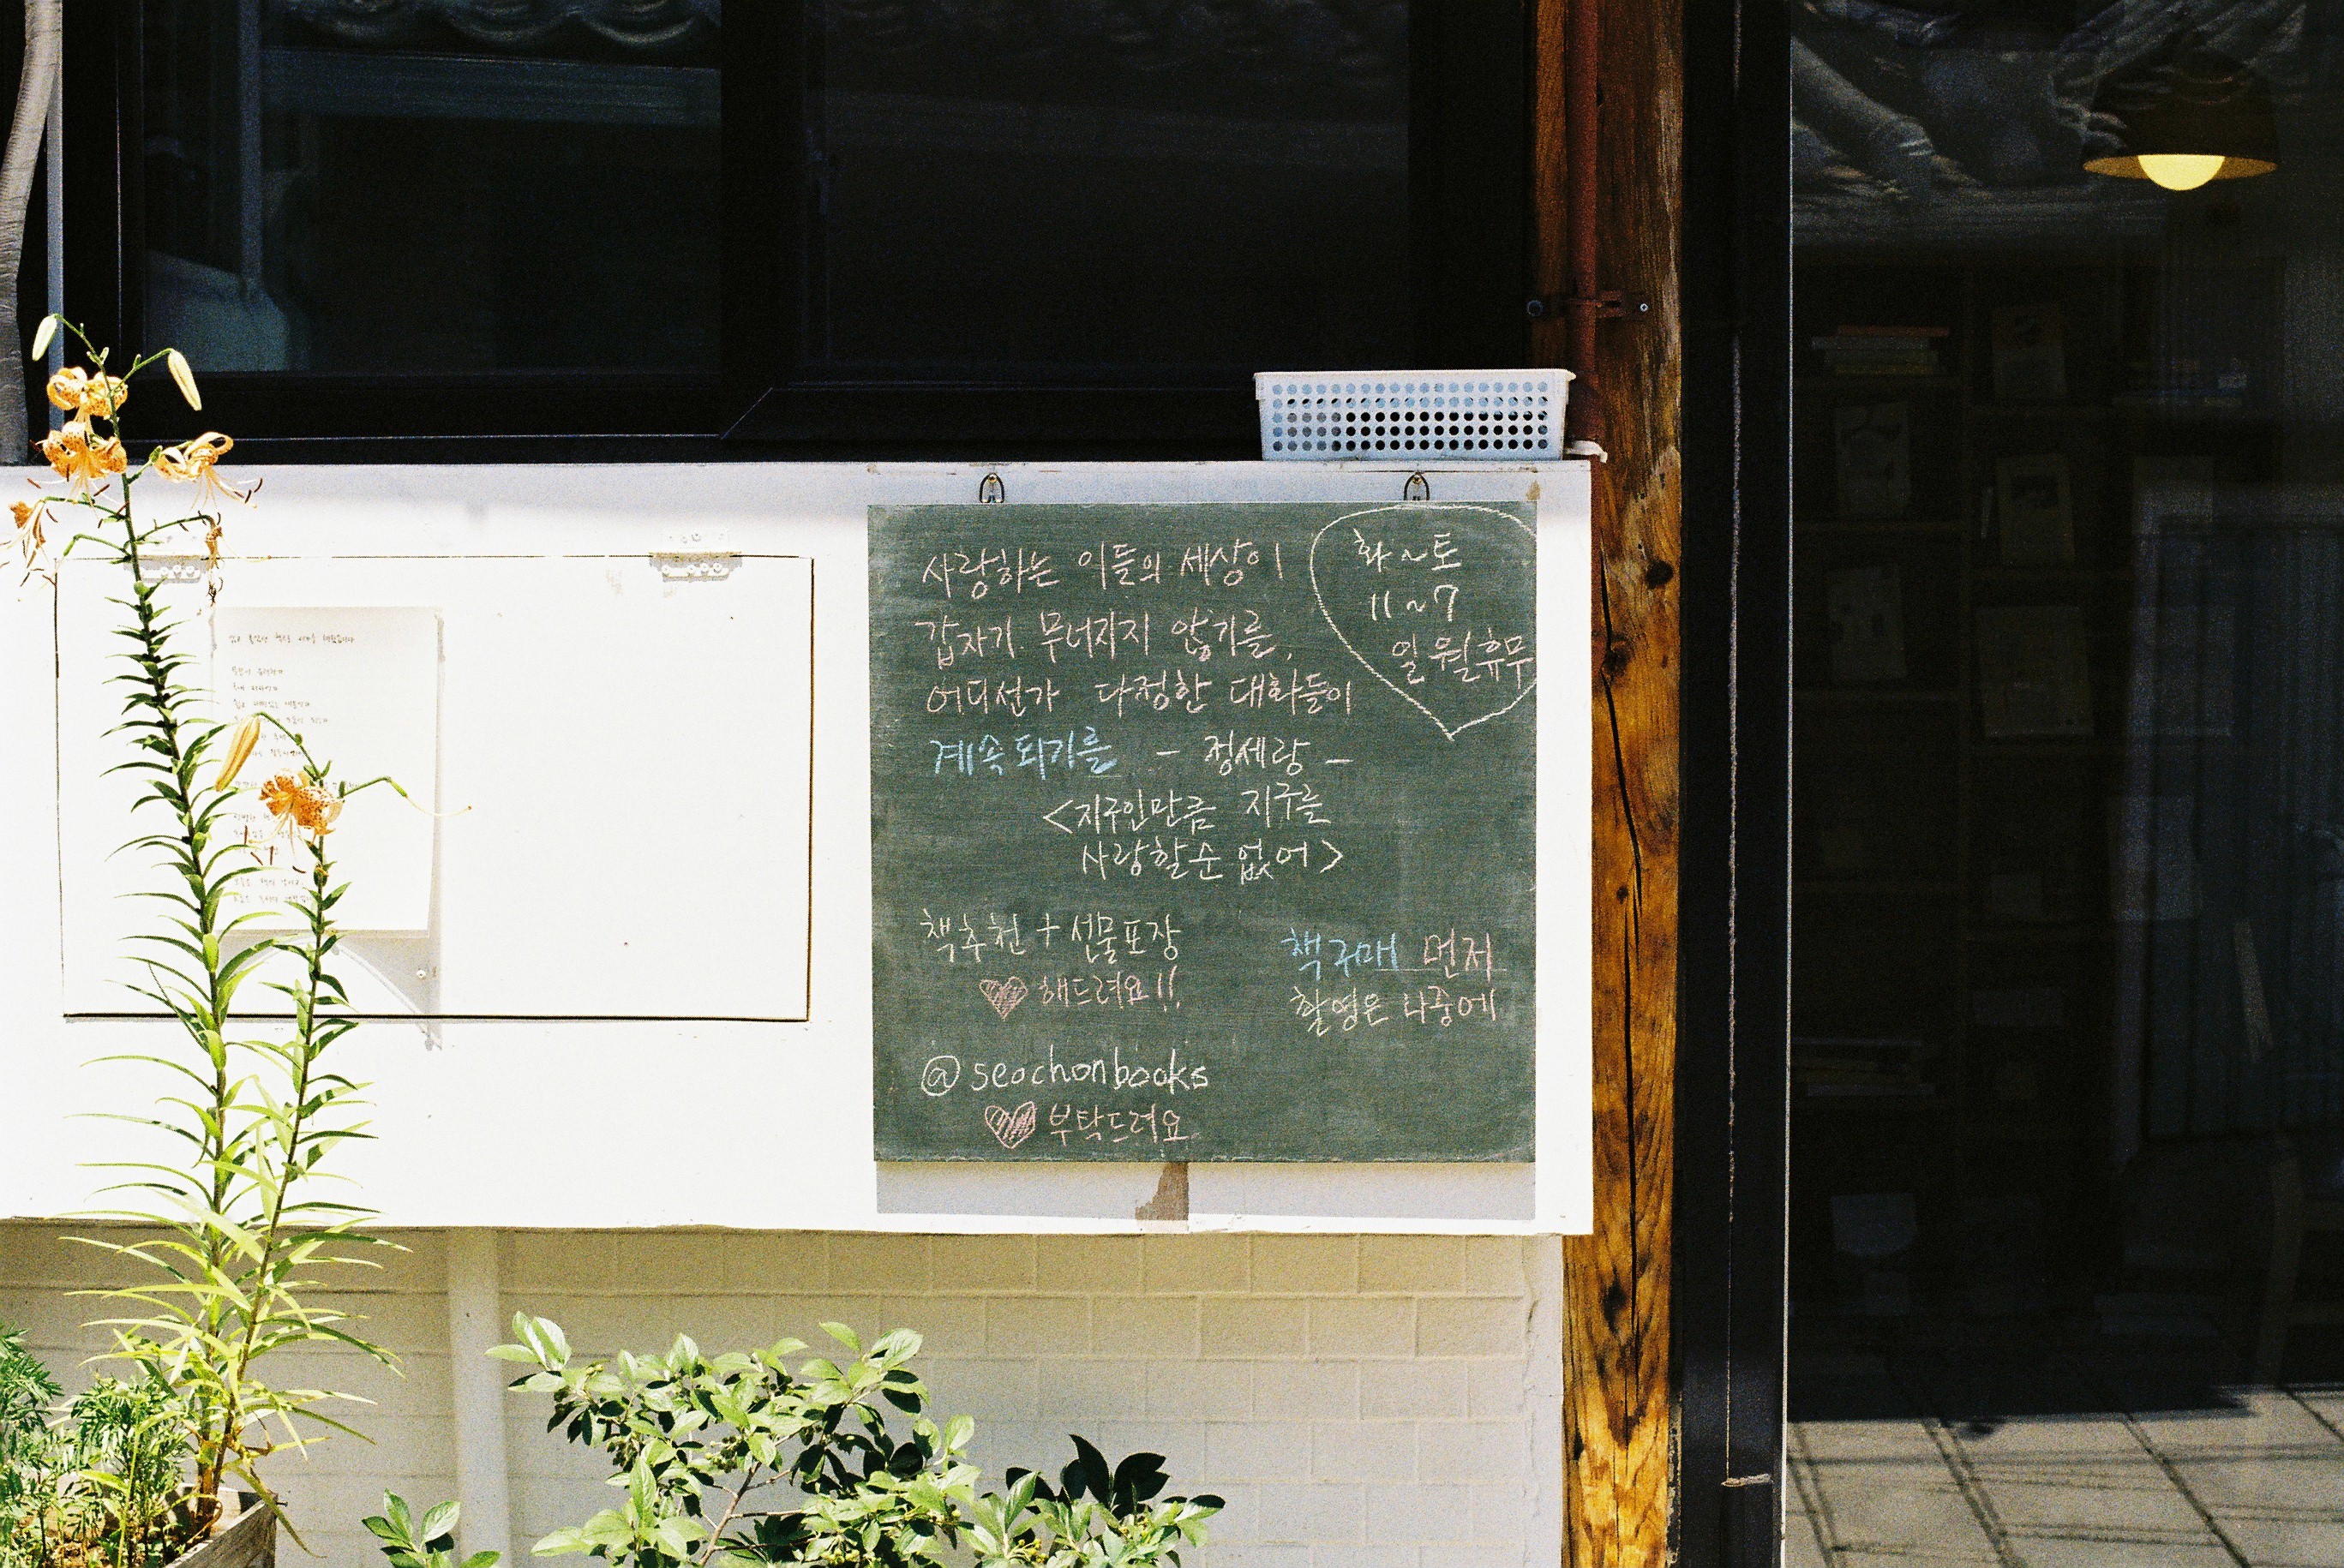 사랑하는 이들의 세상이
갑자기 무너지지 않기를,
어디선가 다정한 대화들이
계속되기를 - 정세랑 -
<지구인만큼 지구를
사랑할순 없어>
화~토
11~7
일월휴무
책추천+선물포장
♡해드려요!!
책구매 먼저
촬영은 나중에
@seochonbooks
♡부탁드려요